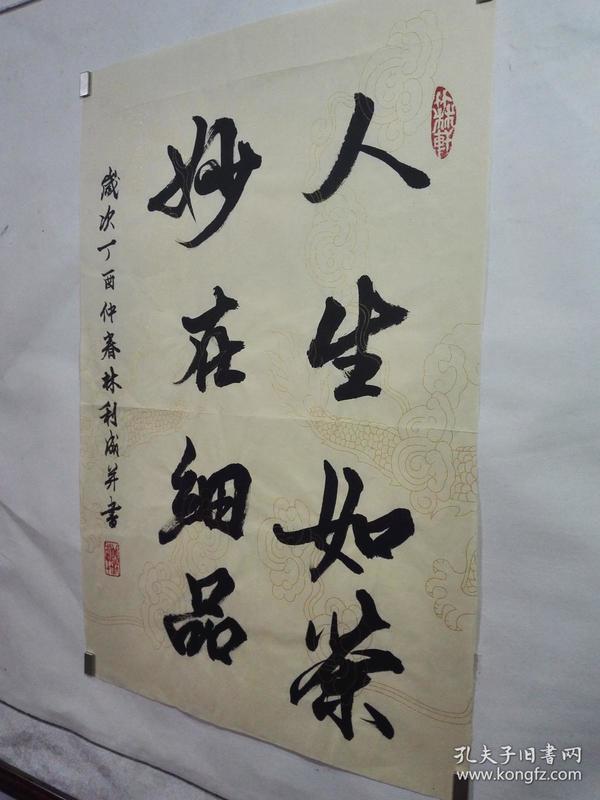 人生如茶
妙在细品
歲次丁酉仲春林利成并书
孔夫子旧书网
www.kongfz.com